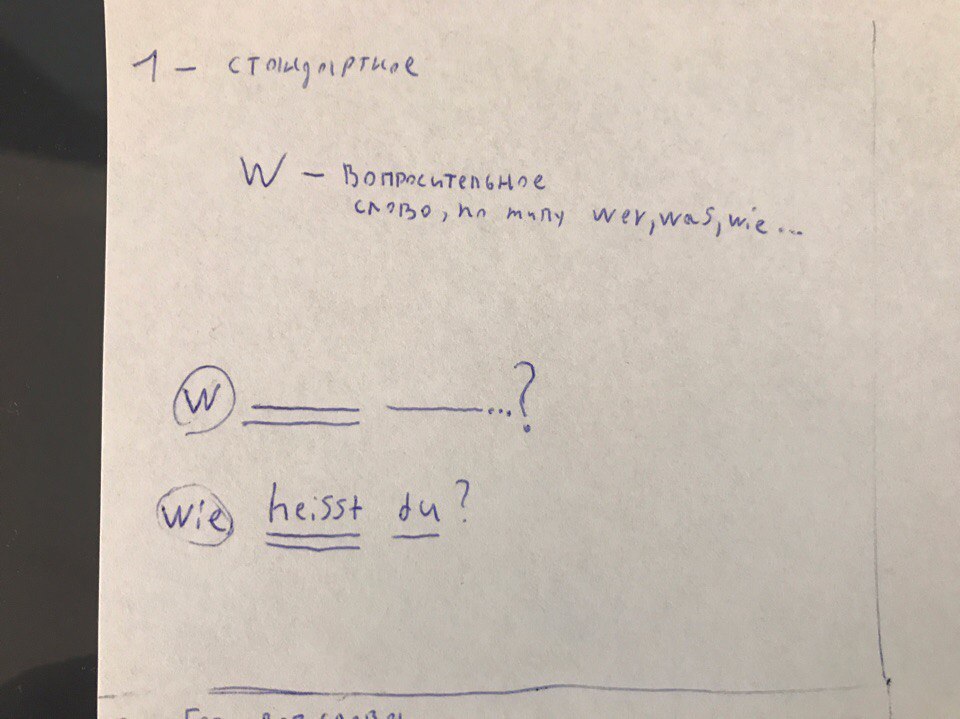 1 - стандартное
W - Вопросительное
слово, по типу wer, was, wie...
W ...?
wie heisst du?